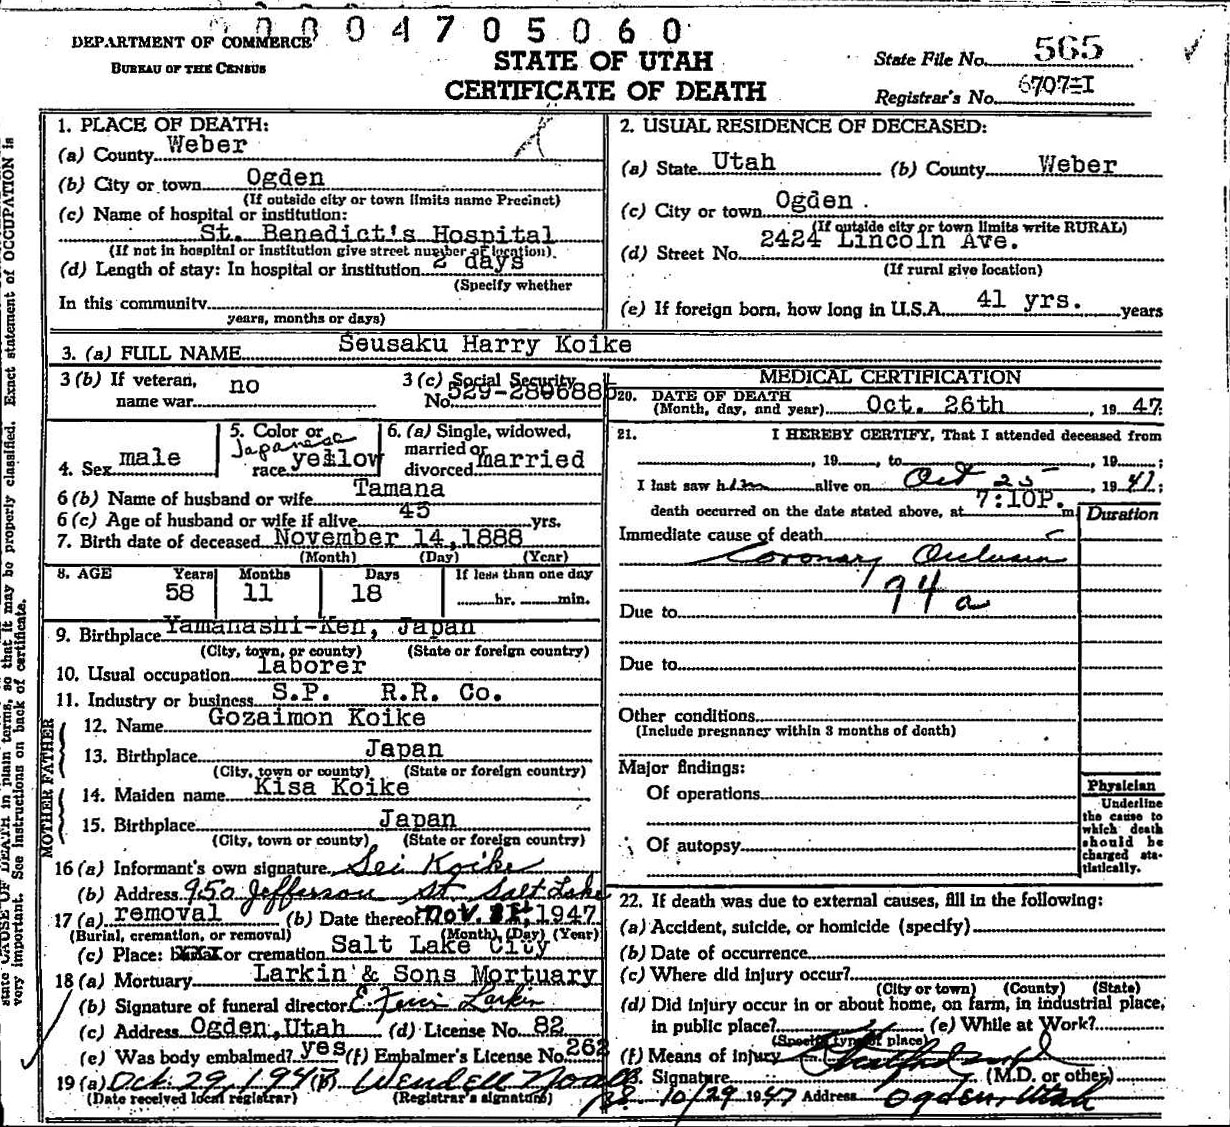 0004705060
DEPARTMENT OF COMMERCE
BUREAU OF THE CENSUS
STATE OF UTAH
CERTIFICATE OF DEATH
State File No. 565
Registrar's No. 6707-I
state CAUSE OF DEATH in plain terms, so that it may be properly classified. Exact statement of OCCUPATION is
very important. See instructions on back of certificate.
1. PLACE OF DEATH:
(a) County Weber
(b) City or town Ogden
(If outside city or town limits name Precinct)
(c) Name of hospital or institution:
St. Benedict's Hospital
(If not in hospital or institution give street number or location).
(d) Length of stay: In hospital or institution 2 days
(Specify whether
In this community
years, months or days)
2. USUAL RESIDENCE OF DECEASED:
(a) State Utah (b) County Weber
(c) City or town Ogden
(If outside city or town limits write RURAL)
(d) Street No. 2424 Lincoln Ave.
(If rural give location)
(e) If foreign born, how long in U.S.A. 41 yrs. years
3. (a) FULL NAME Seusaku Harry Koike
3 (b) If veteran, name war no
3 (c) Social Security No. 529-2806885
4. Sex male
5. Color or race Japanese yellow
6. (a) Single, widowed, married or divorced married
6 (b) Name of husband or wife Tamana
6 (c) Age of husband or wife if alive 45 yrs.
7. Birth date of deceased November 14, 1888
(Month) (Day) (Year)
8. AGE Years Months Days If less than one day
58 11 18 hr. min.
9. Birthplace Yamanashi-Ken, Japan
(City, town, or county) (State or foreign country)
10. Usual occupation laborer
11. Industry or business S.P. R.R. Co.
FATHER
12. Name Gozaimon Koike
13. Birthplace Japan
(City, town or county) (State or foreign country)
MOTHER
14. Maiden name Kisa Koike
15. Birthplace Japan
(City, town or county) (State or foreign country)
16 (a) Informant's own signature Sei Koike
(b) Address 950 Jefferson St Salt Lake
17 (a) removal (b) Date thereof Nov. 1947
(Burial, cremation, or removal) (Month) (Day) (Year)
(c) Place: or cremation Salt Lake City
18 (a) Mortuary Larkin & Sons Mortuary
(b) Signature of funeral director Larkin
(c) Address Ogden, Utah (d) License No. 82
(e) Was body embalmed? yes (f) Embalmer's License No. 262
19 (a) Oct 29, 1947 (b) Wendell Noall
(Date received local registrar) (Registrar's signature)
MEDICAL CERTIFICATION
20. DATE OF DEATH
(Month, day, and year) Oct. 26th, 1947
21. I HEREBY CERTIFY, That I attended deceased from
, 19 , to , 19 ;
I last saw him alive on Oct 25, 1947;
death occurred on the date stated above, at 7:10P. m.
Duration
Immediate cause of death
Coronary Occlusion
94a
Due to
Due to
Other conditions
(Include pregnancy within 3 months of death)
Major findings:
Of operations
Of autopsy
Physician
Underline the cause to which death should be charged statistically.
22. If death was due to external causes, fill in the following:
(a) Accident, suicide, or homicide (specify)
(b) Date of occurrence
(c) Where did injury occur?
(City or town) (County) (State)
(d) Did injury occur in or about home, on farm, in industrial place,
in public place? (e) While at Work?
(Specify type of place)
(f) Means of injury
23. Signature (M.D. or other)
10/29 1947 Address Ogden, Utah